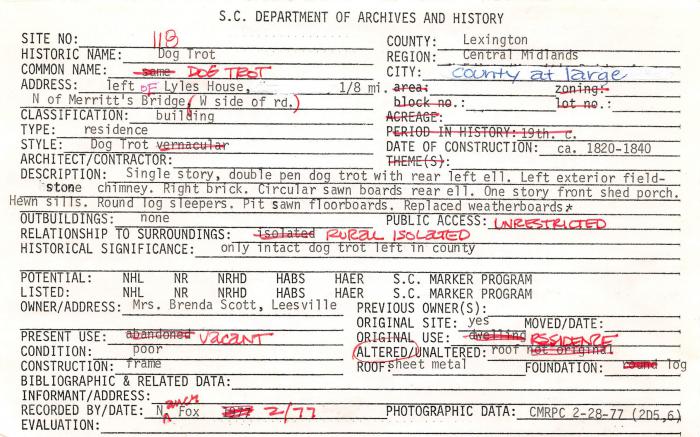 S.C. DEPARTMENT OF ARCHIVES AND HISTORY
SITE NO: 118 COUNTY: Lexington
HISTORIC NAME: Dog Trot REGION: Central Midlands
COMMON NAME: same DOG TROT CITY: county at large
ADDRESS: left OF Lyles House, 1/8 mi. area: zoning:
N of Merritt's Bridge (W side of rd.) block no.: lot no.:
CLASSIFICATION: building ACREAGE:
TYPE: residence PERIOD IN HISTORY: 19th. C.
STYLE: Dog Trot vernacular DATE OF CONSTRUCTION: ca. 1820-1840
ARCHITECT/CONTRACTOR: THEME(S):
DESCRIPTION: Single story, double pen dog trot with rear left ell. Left exterior field-
stone chimney. Right brick. Circular sawn boards rear ell. One story front shed porch.
Hewn sills. Round log sleepers. Pit sawn floorboards. Replaced weatherboards*
OUTBUILDINGS: none PUBLIC ACCESS: UNRESTRICTED
RELATIONSHIP TO SURROUNDINGS: isolated RURAL ISOLATED
HISTORICAL SIGNIFICANCE: only intact dog trot left in county
POTENTIAL: NHL NR NRHD HABS HAER S.C. MARKER PROGRAM
LISTED: NHL NR NRHD HABS HAER S.C. MARKER PROGRAM
OWNER/ADDRESS: Mrs. Brenda Scott, Leesville PREVIOUS OWNER(S):
ORIGINAL SITE: yes MOVED/DATE:
PRESENT USE: abandoned VACANT ORIGINAL USE: dwelling RESIDENCE
CONDITION: poor ALTERED/UNALTERED: roof not original
CONSTRUCTION: frame ROOF: sheet metal FOUNDATION: round log
BIBLIOGRAPHIC & RELATED DATA:
INFORMANT/ADDRESS:
RECORDED BY/DATE: Nancy Fox 1977 2/77 PHOTOGRAPHIC DATA: CMRPC 2-28-77 (2D5,6)
EVALUATION: